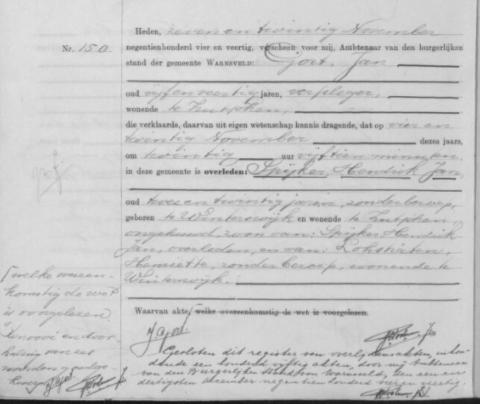 Heden, zeven en twintig November
Nr. 150
negentienhonderd vier en veertig, verscheen voor mij, Ambtenaar van den burgerlijken
stand der gemeente WARNSVELD: Jan
oud vijf en veertig jaren, verpleger,
wonende te Zutphen,
die verklaarde, daarvan uit eigen wetenschap kennis dragende, dat op vier en
twintig November dezes jaars,
om twintig uur vijftien minuten,
in deze gemeente is overleden: Spijker, Hendrik Jan
oud twee en twintig jaren, zonder beroep,
geboren te Winterswijk en wonende te Zutphen,
ongehuwd, zoon van: Spijker, Hendrik
Jan, overleden, en van:
zonder beroep, wonende te
Winterswijk.
welke overeen-
komstig de wet
is voorgelezen.
Waarvan akte, welke overeenkomstig de wet is voorgelezen.
Gesloten dit register van overlijdensakten, inhou-
dende een honderd vijftig akten, door mij Ambtenaar
van den Burgerlijken Stand van Warnsveld, den een en
dertigsten december negentienhonderd vier en veertig.